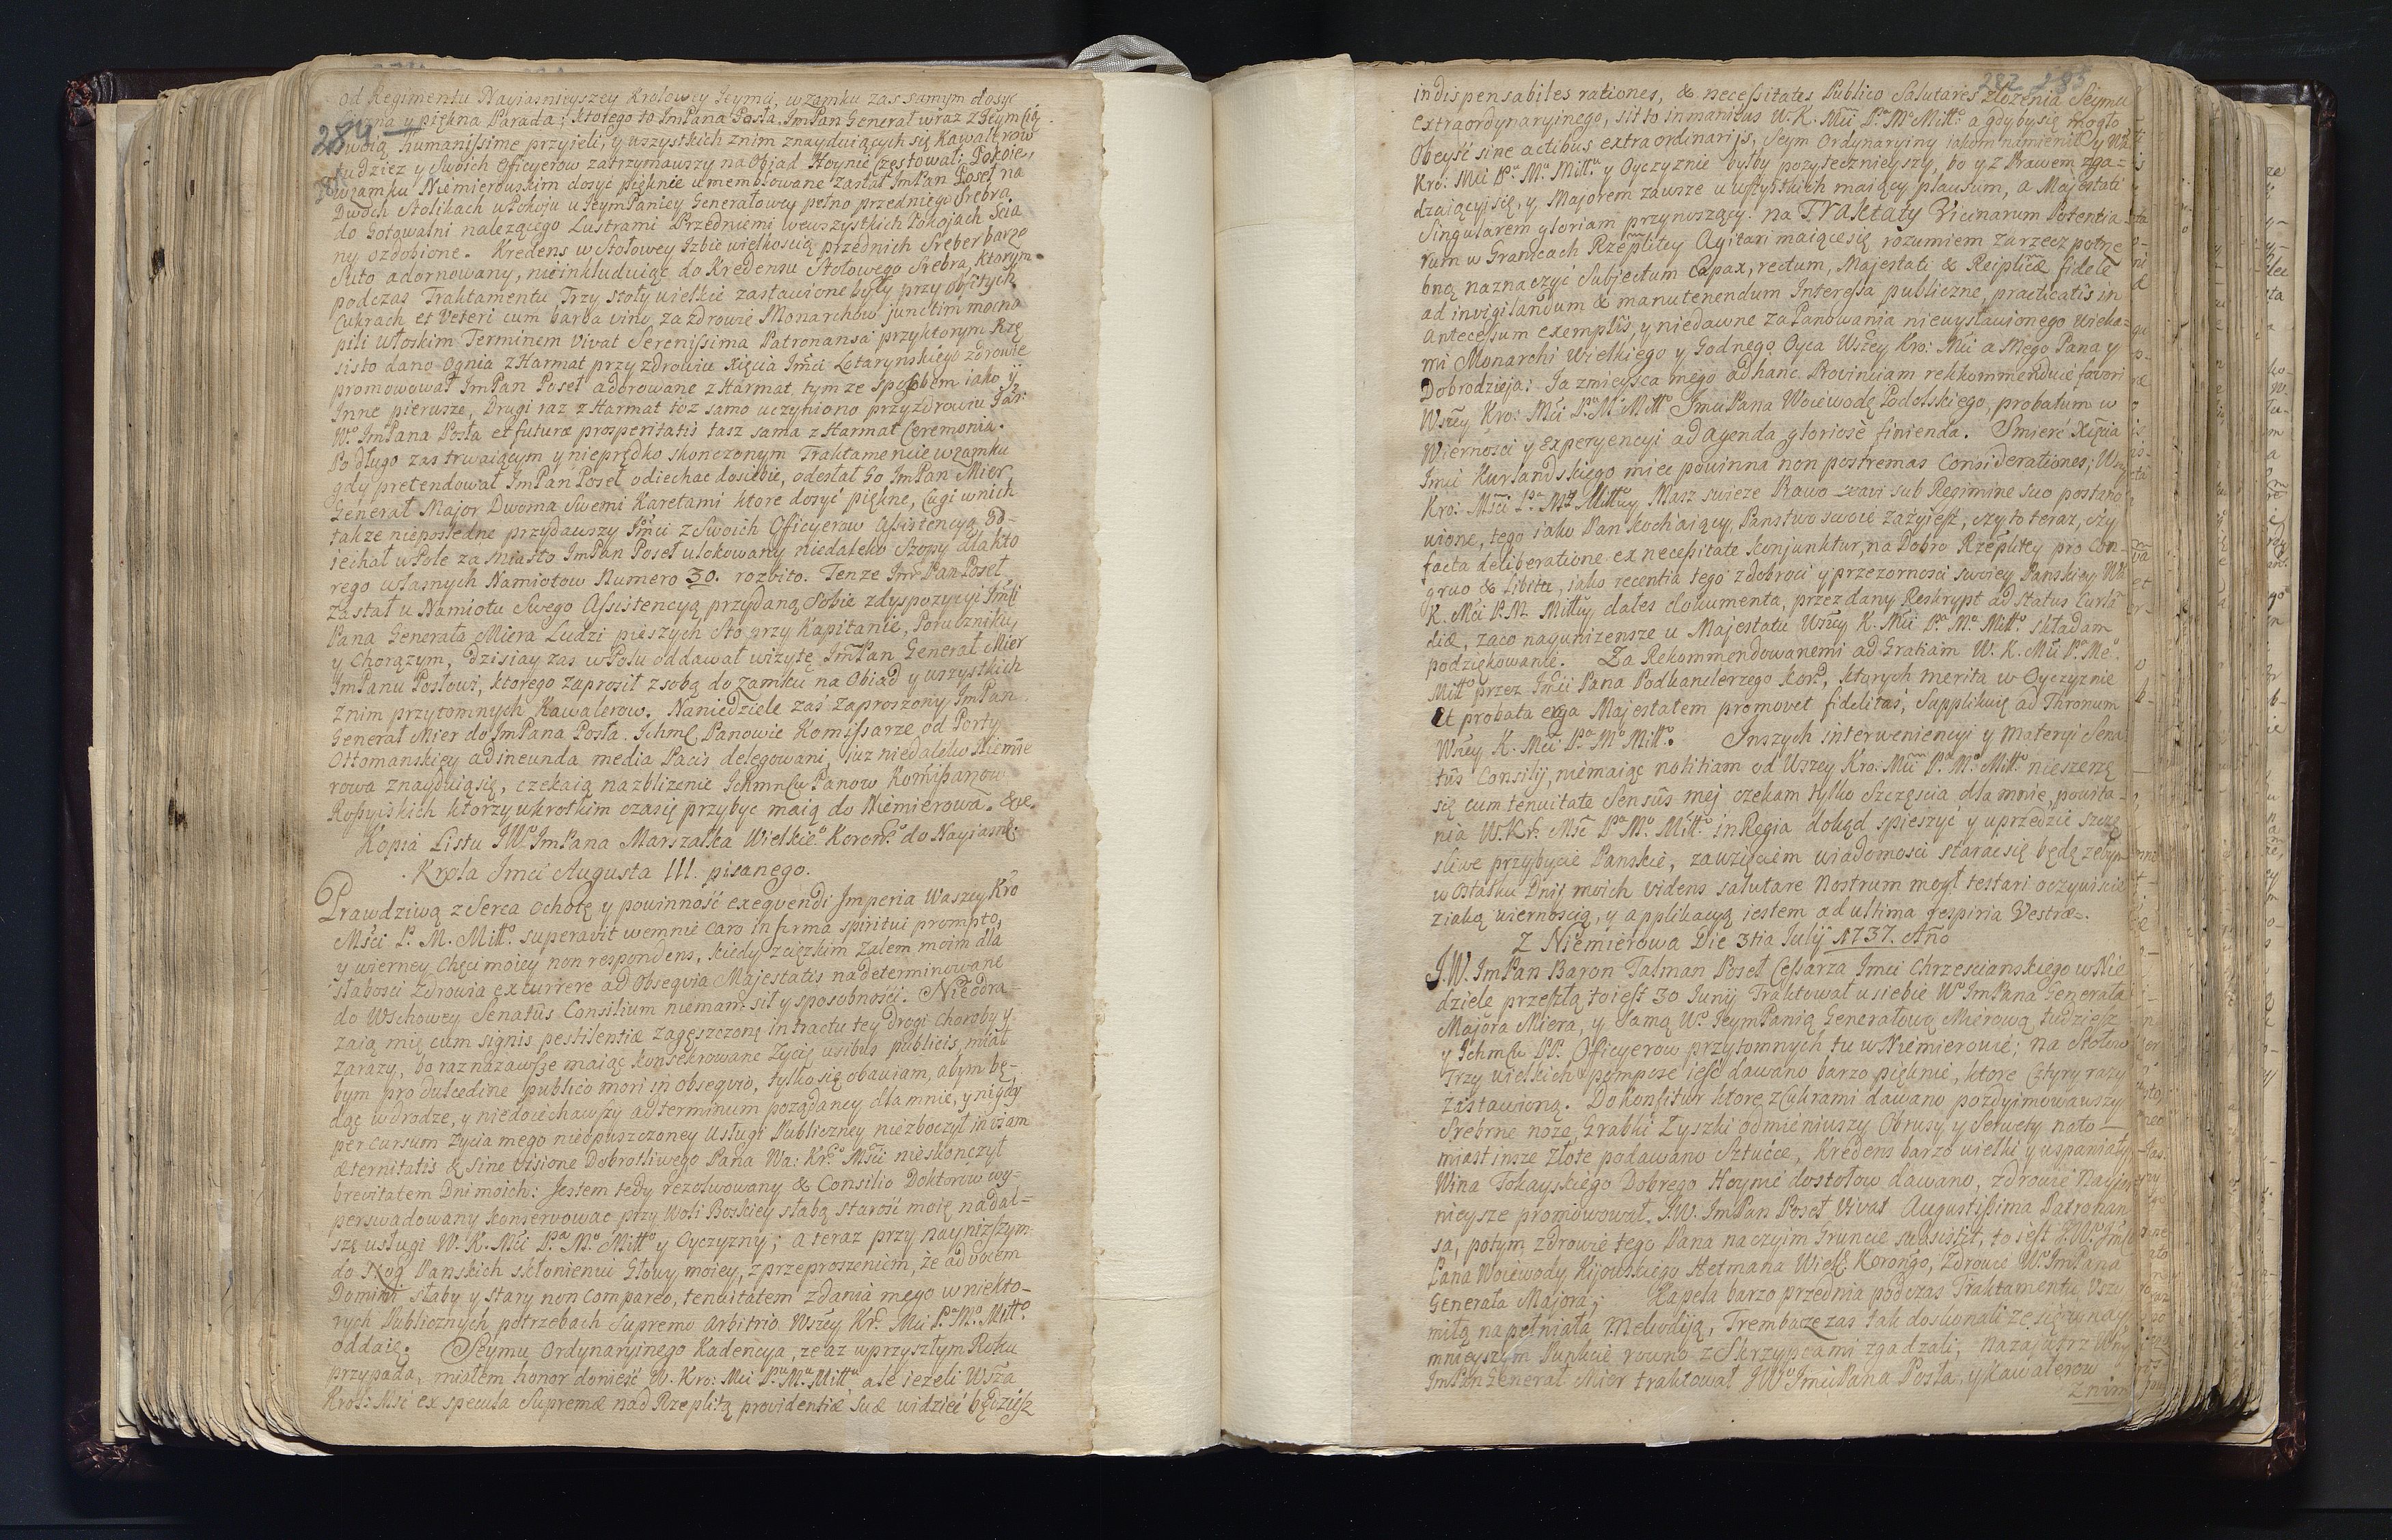 284
od Regimentu Nayiasnieyszey Krolowey Jeymci, w zamku zas samym dosyc
y piękna Parada; ktorego to ImPana Posła ImPan Generał wraz z Jeymścią
swoią humanissime przyieli, y wszystkich znim znayduiących się Kawalerow
tudziez y Swoich Officyerow zatrzymawszy na Obiad Hoynie częstowali; Pokoie,
w zamku Niemierowskim dosyć pięknie umeblowane zastał ImPan Poseł na
Dwoch Stolikach w Pokoju u JeymPaniey Generałowey pełno przedniego Srebra
do Gotowalni nalezącego Lustrami Przedniemi we wszystkich Pokojach Scia
ny ozdobione. Kredens w Stołowey Izbie wielkością przednich Sreber barzo
Suto adornowany, nieinkluduiąc do Kredensu Stołowego Srebra, ktorym
podczas Traktamentu Trzy stoły wielkie zastawione były przy obfitych
Cukrach et Veteri cum barba vino za zdrowie Monarchow junctim mocno
pili Włoskim Terminem Vivat Serenissima Patronansa przy ktorym Rzę
sisto dano Ognia z Harmat przy zdrowiu Xięcia Imci Lotarynskiego zdrowie
promowował ImPan Poseł adorowane z Harmat tymze sposobem iako y
Inne pierwsze, Drugi raz z Harmat toz samo uczyniono przy zdrowiu Jaś:
W° ImPana Posła et futuræ prosperitatis tasz sama z Harmat Ceremonia.
Po długo zas trwaiącym y nieprędko skonczonym Traktamencie w zamku
gdy pretendował ImPan Poseł odiechac do siebie, odesłał Go ImPan Mier
Generał Major Dwoma Swemi Karetami ktore dosyć piękne, Cugi w nich
takze nieposledne przydawszy Imci z Swoich Officyerow Asistencyą. Od-
iechał w Pole za Miasto ImPan Poseł ulokowany niedaleko Szopy dla kto
rego własnych Namiotow Numero 30. rozbito. Tenze Imć Pan Poseł
Zastał u Namiotu Swego Assistencyą przydaną Sobie z dyspozycyi Imci
Pana Generała Miera Ludzi pieszych Sto przy Kapitanie, Poruczniku,
y Chorązym, Dzisiay zas w Polu oddawał wizytę ImPan Generał Mier
ImPanu Posłowi, ktorego zaprosił z sobą do zamku na Obiad y wszystkich
znim przytomnych Kawalerow. Na niedziele zaś zaproszony ImPan
Generał Mier do ImPana Posła. Ichmć Panowie Komissarze od Porty
Ottomanskiey ad ineunda media Pacis delegowani, iuz niedaleko Niemie
rowa znayduią się, czekaią na zblizenie Ichmciow Panow Komissarzow
Rossyiskich ktorzy wkrotkim czasie przybyc maią do Niemierowa. &c.
Kopia Listu JW° ImPana Marszałka Wielkie° Koron° do Nayiasn:
Krola Imci Augusta III. pisanego.
Prawdziwą z Serca Ochotę y powinność exequendi Imperia Waszey Kro
Mści P. M. Miłł° superavit wemnie caro infirma spiritui prompto,
y wierney Chęci moiey non respondens, kiedy z cięzkim zalem moim dla
słabosci zdrowia excurrere ad Obsequia Majestatis na determinowane
do Wschowey Senatûs Consilium niemam sił y sposobności. Nieodra-
zaią mię cum signis pestilentiæ zagęszczone in tractu tey drogi Choroby y
zarazy, bo raz nazawsze maiąc konsekrowane Zycie usibus publicis, miał
bym pro dulcedine publico mori in obsequio, tylko się obawiam, abym bę-
dąc w drodze, y niedoiechawszy ad terminum poządaney dla mnie, y nigdy
per cursum Zycia mego nieopuszczoney Usługi Publiczney niezboczył in viam
æternitatis & sine visione Dobrotliwego Pana Wa: Kr° Mści nieskonczył
brevitatem Dni moich: Jestem tedy rezolwowany & Consilio Doktorow wy-
perswadowany konserwowac przy Woli Boskiey słabą Starość moię na dal-
szę usługi W. K. Mći P.a M.° Miłł° y Oyczyzny; a teraz przy nayniższym
do Nog Panskich skłonieniu Głowy moiey, z przeproszeniem, że ad vocem
Domini słaby y Stary non compareo, tenuitatem zdania mego w niekto-
rych Publicznych potrzebach Supremo arbitrio Wszey Kr° Mci P.a M.° Miłł°
oddaię. Seymu Ordynaryinego Kadencya, ze az w przyszłym Roku
przypada, miałem honor donieść W. Kro: Mci P.u M.u Miłłu ale iezeli Wsza
Kroł: Mść ex specula Supremæ nad Rzeplitą providentiæ suæ widzieć będziesz
282 285
indispensabiles rationes, & necessitates Publico Salutares złozenia Seymu
extraordynaryinego, sit to in manibus W. K. Mći P.a M° Miłł° a gdyby się mogło
Obeyść sine actibus extraordinarijs, Seym Ordynaryiny iakom namienił y W.
Kro: Mci P.u M.u Miłłu y Oyczyznie byłby pozytecznieyszy, bo y z Prawem zga=
dzaiący się, y Majorem zawsze u wszystkich maiący plausum, a Majestati
Singularem gloriam przynoszący. na Traktaty Vicinarum Potentia
rum w Granicach Rzeplitey Agitari maiące się, rozumiem za rzecz potrze
bną naznaczyć Subjectum Capax, rectum, Majestati & Reiplicæ fidele
ad invigilandum & manutenendum Interessa publiczne, practicatis in
antecessum exemplis, y niedawne za Panowania niewysławionego Wieka=
mi Monarchi Wielkiego y Godnego Oyca Wszey Kro: Mći a Mego Pana y
Dobrodzieja: Ja z mieysca mego ad hanc Provinciam rekkommenduię favori
Wszey Kro: Mći P.a M° Miłł° Imci Pana Woiewodę Podolskiego, probatum w
Wiernosci y Experyencyi ad agenda gloriosè finienda. Smierć Xięcia
Imci Kurlandskiego miec powinna non postremas Considerationes; Wszey
Kro: Mści P.a M.° Miłł, Masz swieze Prawo sub Regimine suo postano
wione, tego iako Pan kochaiący, Panstwo swoie zazyiesz, czy to teraz, czy
facta deliberatione ex necessitate konjunktur, na Dobro Rzeplitey pro Con-
gruo & libitu, iako recentia tego z dobroci y przezornosci swoiey Panskiey W.
K. Mći P. M. Miłły, dałes dokumenta, przez dany Reskrypt ad Status Curla
diæ, zaco nayunizensze u Majestatu Wszey K. Mći P.a M.° Miłł° składam
podziękowanie. Za Rekommendowanemi ad Gratiam W. K. Mći P.a M°
Miłł° przez Imci Pana Podkanclerzego Kor°, ktorych merita w Oyczyznie
Et probata erga Majestatem promovet fidelitas, Supplikuię ad Thronum
Wszey K. Mći P.a M° Miłł°. Inszych interweniencyi y materyi Sena
tûs Consilij, niemaiąc notitiam od Wszey Kro: Mći P.a M.° Miłł° nieszerzę
się cum tenuitate Sensûs mej czekam tylko Szczęscia dla mnie, powita-
nia W. Kr. Mść P.a M.° Miłł° in Regia dokąd spieszyć y uprzedzić szczę
sliwe przybycie Panskie, zawzięciem wiadomosci starac się będę zebym
w Ostatku Dnij moich videns salutare Nostrum mogł testari oczywiscie
z iaką wiernoscią, y applikacyą iestem ad ultima respiria Vestræ.
Z Niemierowa Die 3tia Julij 1737. Año
J.W. ImPan Baron Talman Poseł Cessarza Imci Chrzescianskiego w Nie
dziele przeszłą to iest 30 Junij Traktował u siebie W° ImPana Generała
Majora Miera, y Samą W° JeymPanią Generałową Mierową tudziesz
y Ichmciu PP. Officyerow przytomnych tu w Niemierowie; na Stołow
Trzy wielkich pompose ieść dawano barzo pięknie, ktore Cztyry razy
Zastawioną. Do Konfitur ktore z Cukrami dawano pozdyimowawszy
Srebrne noze, Grabki Łyszki odmieniwszy Obrusy y Serwety na to-
miast insze złote podawano Sztućce, Kredens barzo wielki y wspaniały
Wina Tokayskiego Dobrego Hoynie do stołow dawano, zdrowie Nayias
nieysze promowował J.W. ImPan Poseł Vivat Augustissima Patronan
sa, potym zdrowie tego Pana na czyim Gruncie subsistit, to iest J.W° Imć
Pana Woiewody Kijowskiego Hetmana Wiel: Korongo, Zdrowie W° ImPana
Generała Majora; Kapela barzo przednia podczas Traktamentu, Uszy
miłą napełniała Melodiją, Trembacze zas tak doskonali ze się w nay
mnieyszym Punkcie rowno z Skrzypcami zgadzali; nazajutrz
ImPan Generał Mier traktował J W° Imci Pana Posła, y Kawalerow
znim